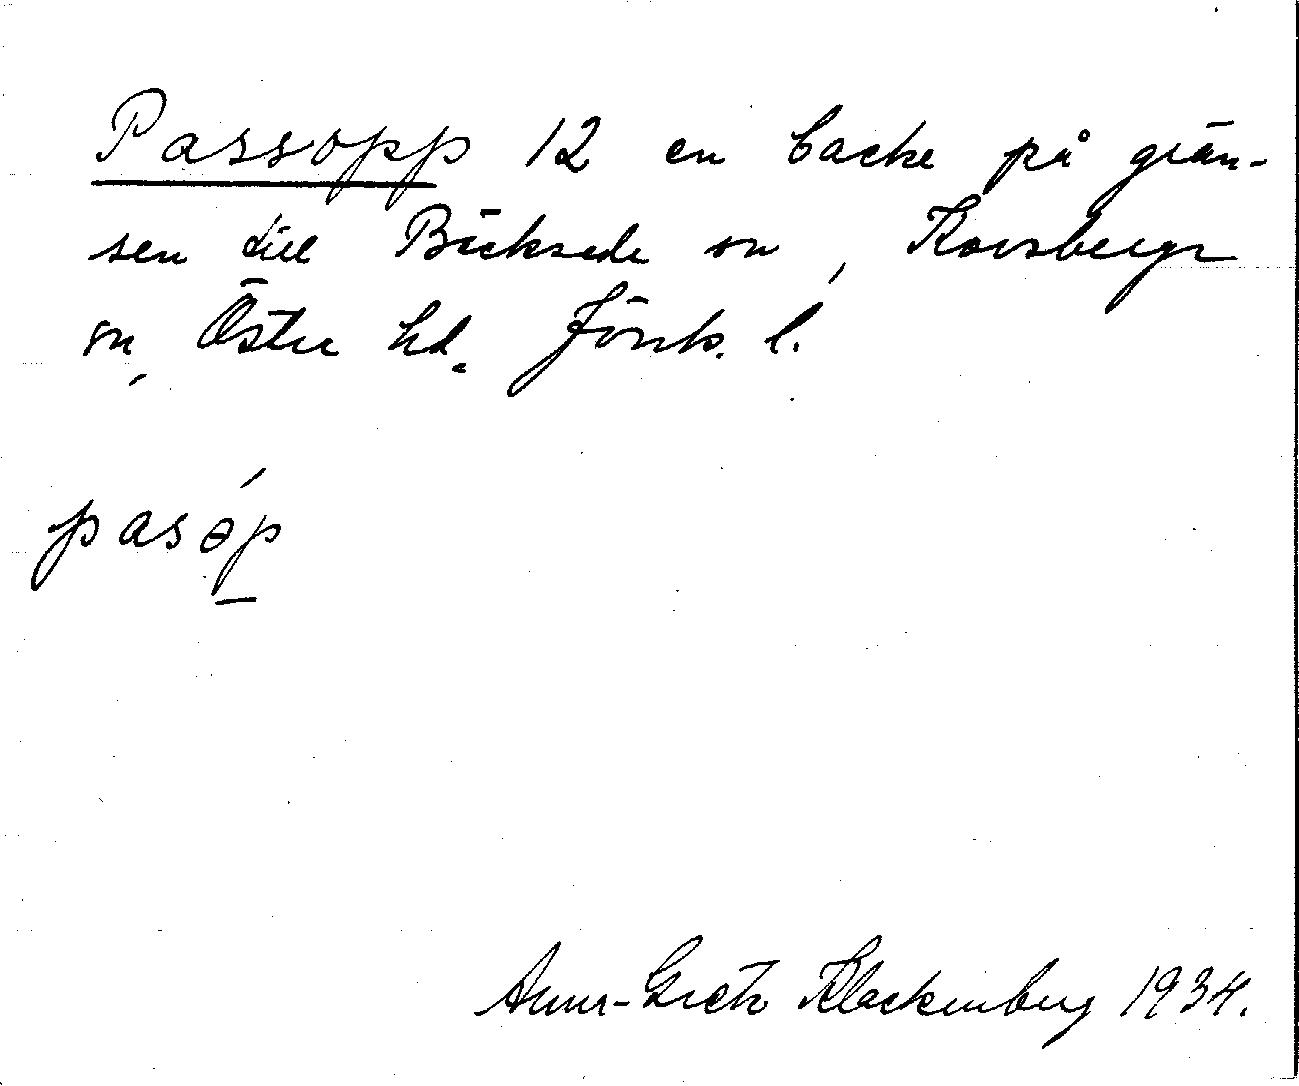 Passopp 12 en backe på grän-
sen till Bäckseda sn, Korsberga
sn, Östra hd. Jönk. l.
pasóp
Anna-Greta Klackenberg 1934.